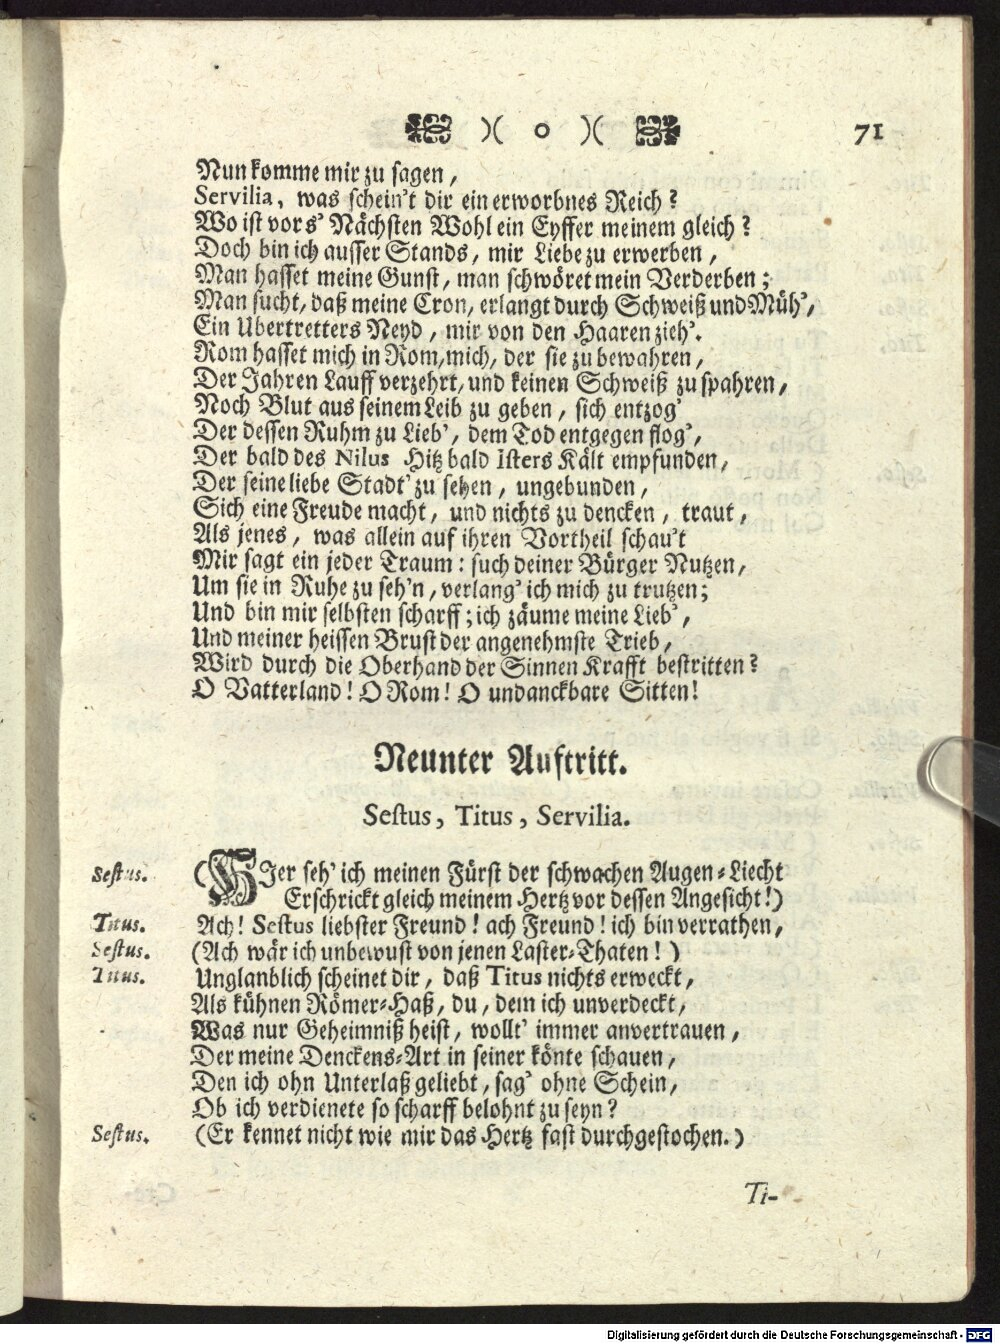 )( o )( 71
Nun komme mir zu sagen,
Servilia, was schein't dir ein erworbnes Reich?
Wo ist vors' Nächsten Wohl ein Eyffer meinem gleich?
Doch bin ich ausser Stands, mir Liebe zu erwerben,
Man hasset meine Gunst, man schwöret mein Verderben;
Man sucht, daß meine Cron, erlangt durch Schweiß und Müh',
Ein Ubertretters Neyd, mir von den Haaren zieh'.
Rom hasset mich in Rom, mich, der sie zu bewahren,
Der Jahren Lauff verzehrt, und keinen Schweiß zu spahren,
Noch Blut aus seinem Leib zu geben, sich entzog'
Der dessen Ruhm zu Lieb', dem Tod entgegen flog',
Der bald des Nilus Hitz bald Isters Kält empfunden,
Der seine liebe Stadt' zu sehen, ungebunden,
Sich eine Freude macht, und nichts zu dencken, traut,
Als jenes, was allein auf ihren Vortheil schau't
Mir sagt ein jeder Traum: such deiner Bürger Nutzen,
Um sie in Ruhe zu seh'n, verlang' ich mich zu trutzen;
Und bin mir selbsten scharff; ich zäume meine Lieb',
Und meiner heissen Brust der angenehmste Trieb,
Wird durch die Oberhand der Sinnen Krafft bestritten?
O Vatterland! O Rom! O undanckbare Sitten!
Neunter Auftritt.
Sestus, Titus, Servilia.
Sestus. (HIer seh' ich meinen Fürst der schwachen Augen-Liecht
Erschrickt gleich meinem Hertz vor dessen Angesicht!)
Titus. Ach! Sestus liebster Freund! ach Freund! ich bin verrathen,
Sestus. (Ach wär ich unbewust von jenen Laster-Thaten!)
Titus. Unglanblich scheinet dir, daß Titus nichts erweckt,
Als kühnen Römer-Haß, du, dem ich unverdeckt,
Was nur Geheimniß heist, wollt' immer anvertrauen,
Der meine Denckens-Art in seiner könte schauen,
Den ich ohn Unterlaß geliebt, sag' ohne Schein,
Ob ich verdienete so scharff belohnt zu seyn?
Sestus. (Er kennet nicht wie mir das Hertz fast durchgestochen.)
Ti-
Digitalisierung gefördert durch die Deutsche Forschungsgemeinschaft - DFG